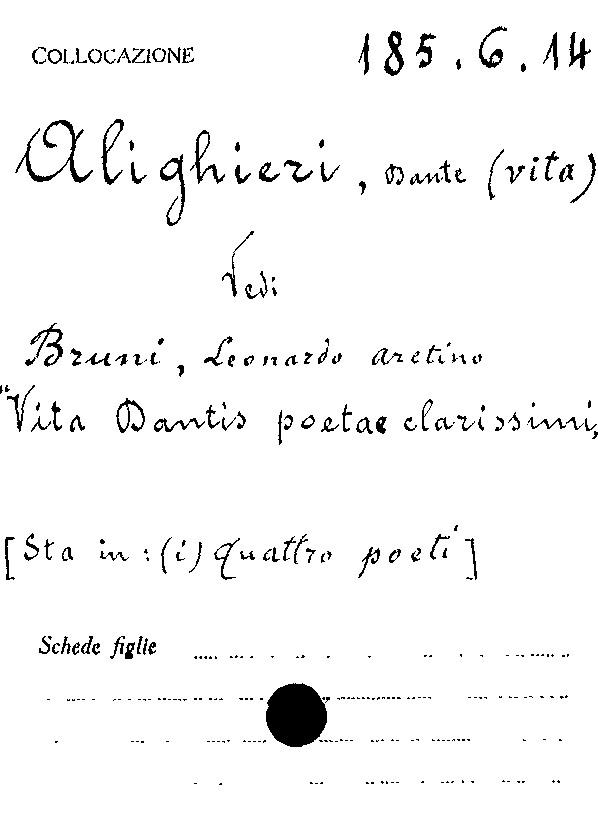 COLLOCAZIONE 185.6.14
Alighieri, Dante (vita)
Vedi
Bruni, Leonardo aretino
"Vita Dantis poetae clarissimi,
[Sta in: (i) Quattro poeti]
Schede figlie